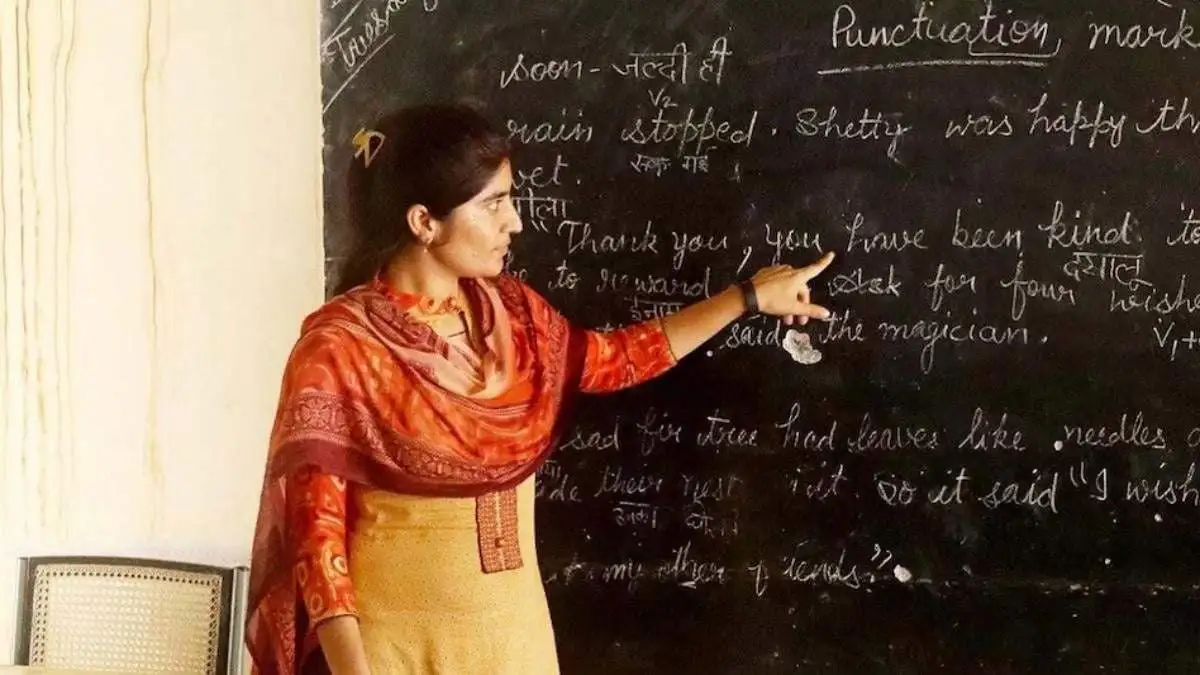 Tuesday
Punctuation mark
soon - जल्दी ही
V2
rain stopped. Shetty was happy th
रुक गई
wet.
गीला
"Thank you, you have been kind to
दयालु
to reward Ask for four wish
ईनाम
said the magician. V1+
sad fir tree had leaves like needles
their nest it. So it said "I wish
उनका
my other friends."